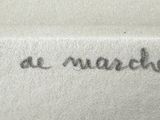 de marche